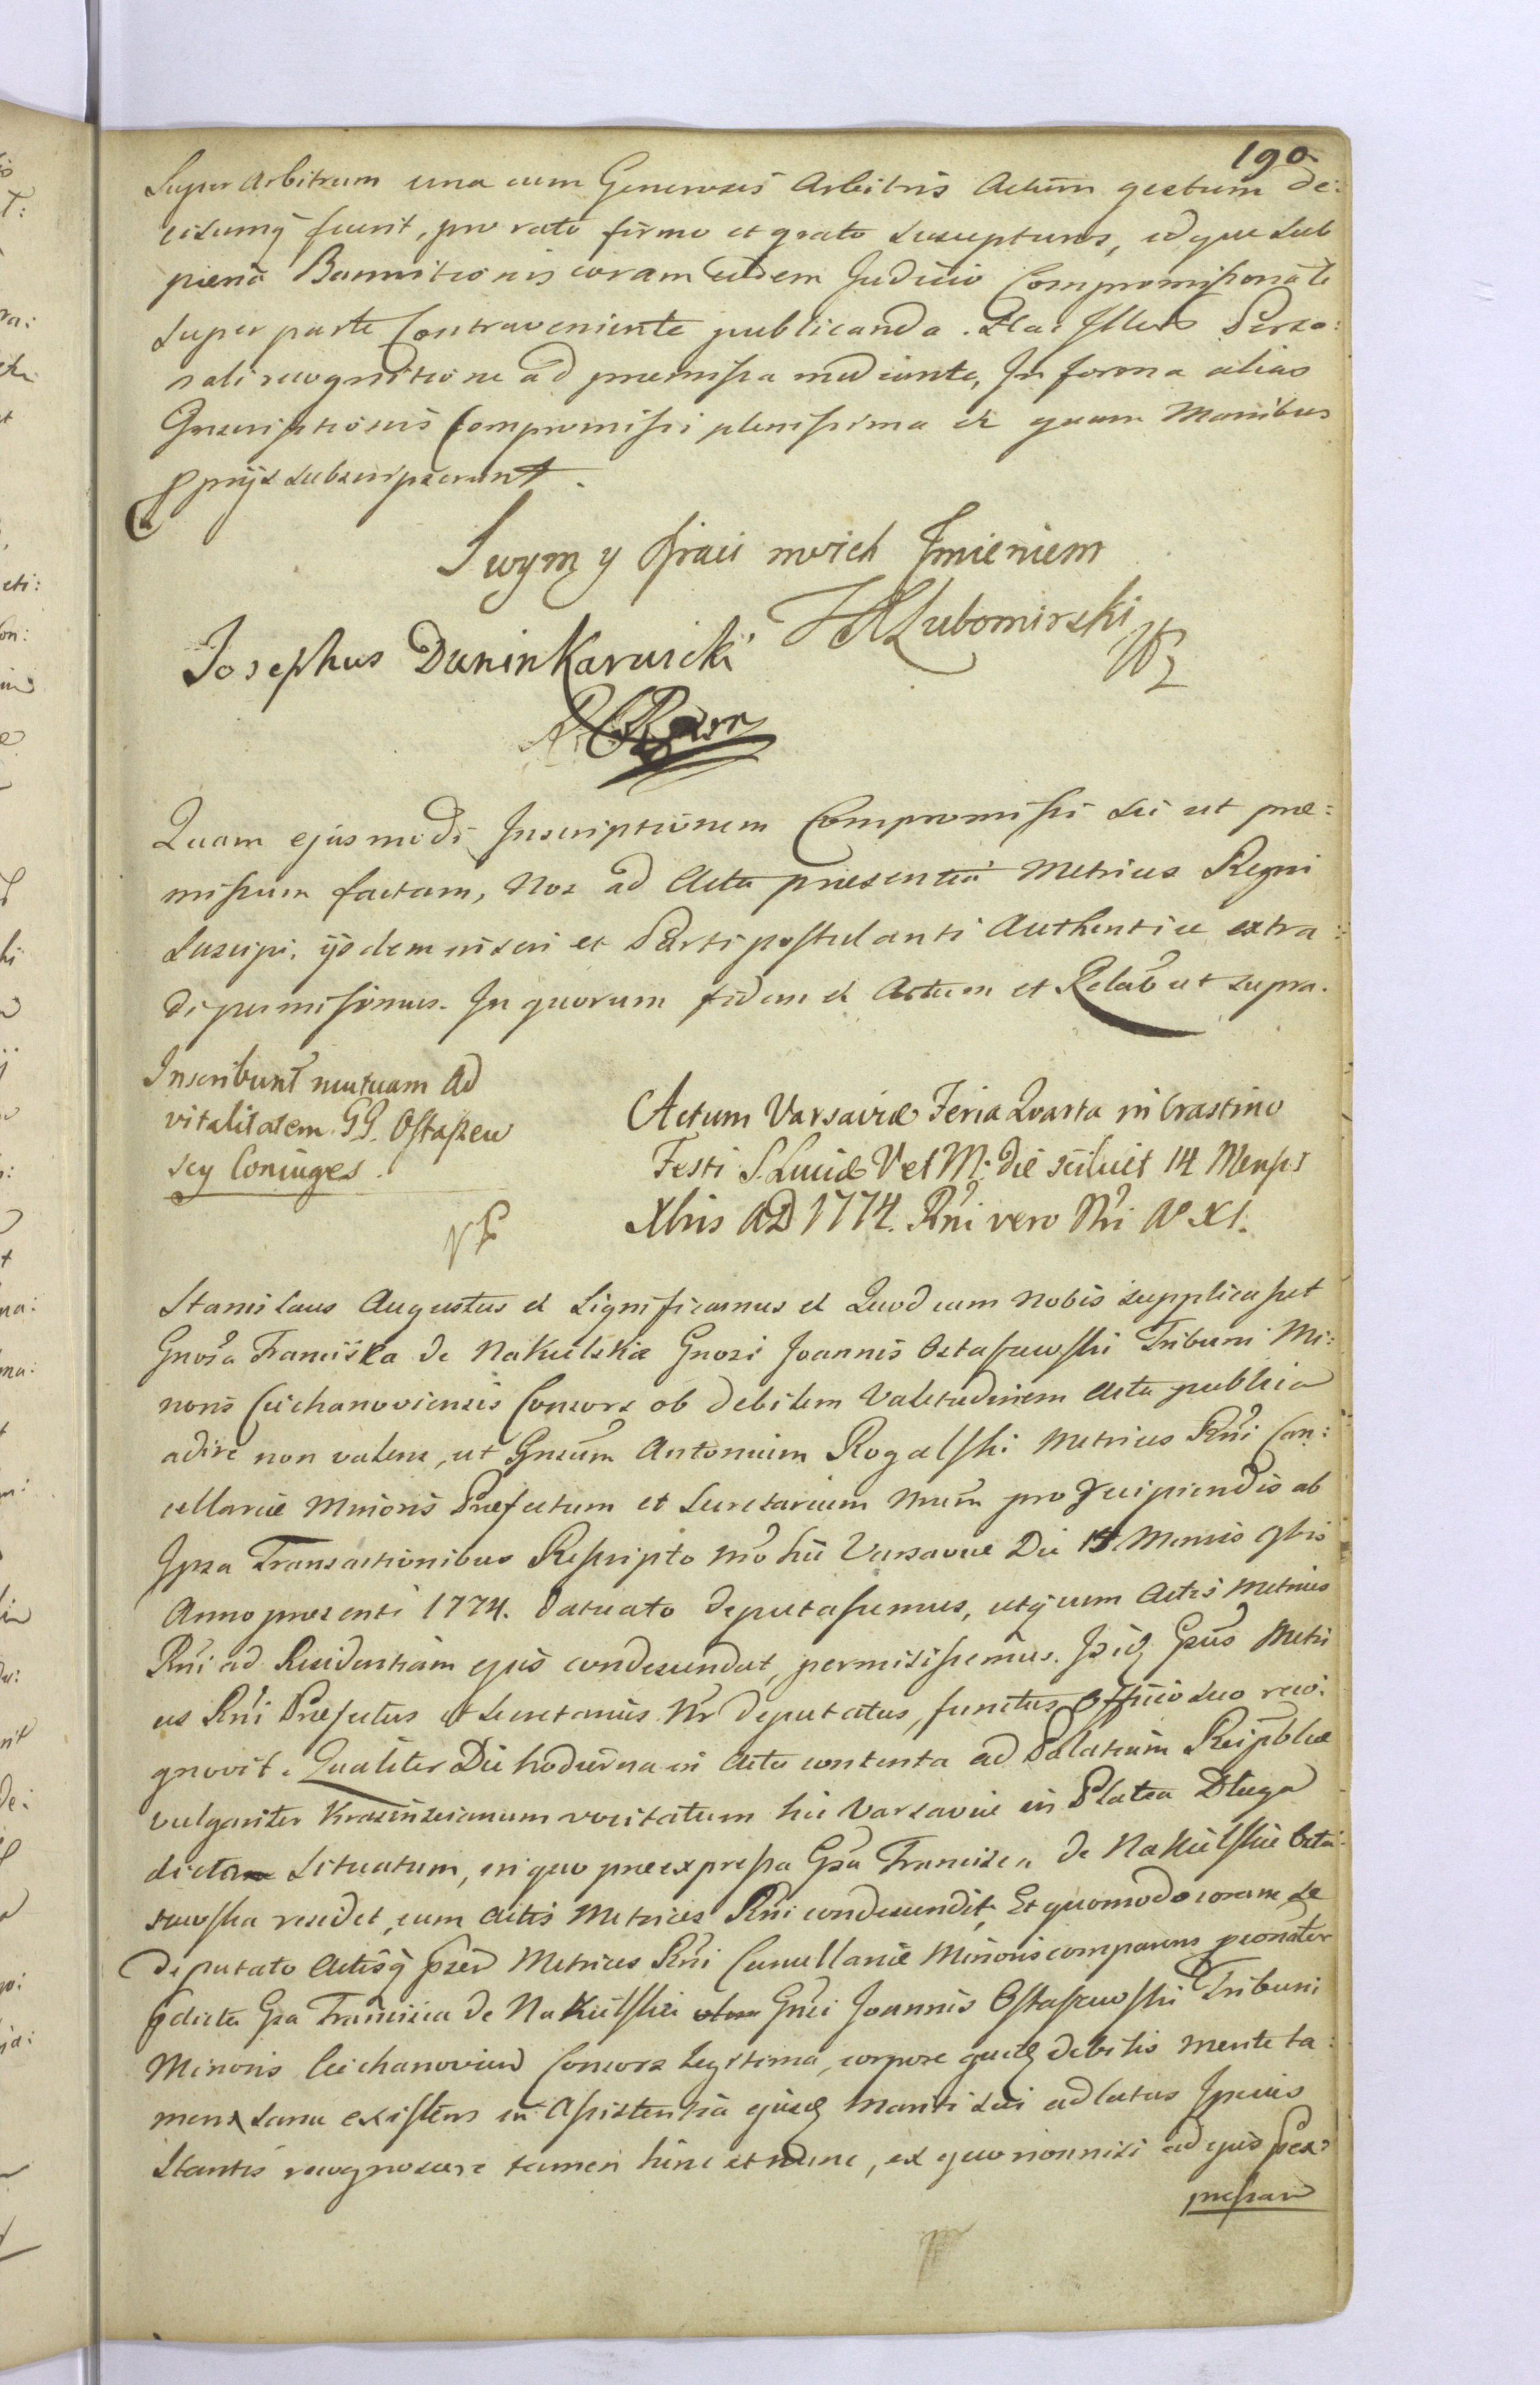 190
Super Arbitrum una cum Generosis Arbitris Actum gestum de:
cisumq fuerit, pro rato firmo et grato suscepturos, idque sub
pæna Bannitionis coram eodem Judicio Compromissoriali
super parte Contraveniente publicanda. Hac Illus Perso:
nali recognitione ad præmissa mediante, In forma alias
Inscriptionis Compromissi plenissima et quam Manibus
pprijs subscripserunt.
Swym y braci moich Jmieniem
Lubomirski
Josephus Dunin Karwicki
Quam ejusmodi Inscriptionem Compromissi sui ut præ:
missum factam, Nos ad Acta præsentia Metrices Regni
suscipi, ijsdem inseri et Parti postulanti Authentice extra:
di permisimus. In quorum fidem et Actum et Relaõ ut supra.
Inscribunt mutuam Ad
vitalitatem GG. Ostaszew
scy Coniuges.
Actum Varsaviæ Feria Qvarta in Crastino
Festi S. Luciæ V et M: die scilicet 14 Menss
Xbris AD 1774. Rni vero Nri Aº XI.
Stanislaus Augustus et Significamus et Quod cum nobis supplicasset
Gnosa Franciska de Nakulskie Gnosi Joannis Ostaszewski Tribuni Mi:
noris Ciechanoviensis Consors ob debilem Valetudinem Acta publica
adire non valens, ut Gnsum Antonium Rogalski Metrices Rni Can:
cellariæ Minoris Præfectum et Secretarium Nrum pro recipiendis ab
Ipsa Transactionibus Rescripto nro hic Varsaviæ Die 14 Mensis Xbris
Anno præsenti 1774. datuato deputassemus, utq cum Actis Metrices
Rni ad Residentiam ejus condescendat, permisissemus. Isq Gsus Metri
ces Rni Præfectus et Secretarius Nr deputatus, functus Officio suo reco:
gnovit. Qualiter Die hodierna in Actu contenta ad Palatium Reipblicæ
vulgariter Krasinscianum vocitatum hic Varsaviæ in Platea Dluga
dicta situatum, in quo præexpressa Gsa Francisca de Nakulskie Osta:
szewska residet, cum Actis Metrices Rni condescendit, Et quomodo coram se
deputato Actisq pred Metrices Rni Cancellariæ Minoris comparens psonaliter
pdicta Gsa Francisca de Nakulskie Gnsi Joannis Ostaszewski Tribuni
Minoris Ciechanovien Consors legitima, corpore quidq debilis mente ta:
men sana existens in Assistentia ejusq Mariti sui ad latus Ipsius
Stantis recognoscere tamen hinc et nunc, ex quo nonnisi ad ejus psex:
pressam